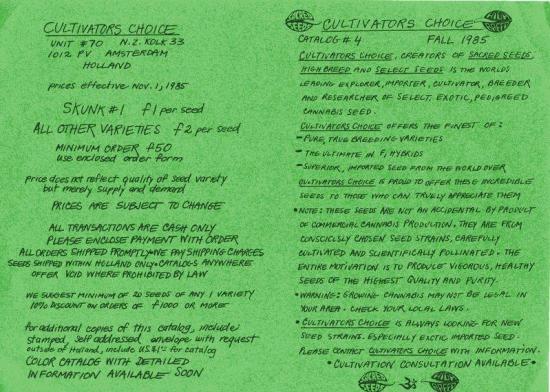 CULTIVATORS CHOICE
UNIT #70 N.Z. KOLK 33
1012 PV AMSTERDAM
HOLLAND
prices effective Nov. 1, 1985
SKUNK #1 f1 per seed
ALL OTHER VARIETIES f2 per seed
MINIMUM ORDER f50
use enclosed order form
price does not reflect quality of seed variety
but merely supply and demand
PRICES ARE SUBJECT TO CHANGE
ALL TRANSACTIONS ARE CASH ONLY
PLEASE ENCLOSE PAYMENT WITH ORDER
ALL ORDERS SHIPPED PROMPTLY • WE PAY SHIPPING CHARGES
SEEDS SHIPPED WITHIN HOLLAND ONLY • CATALOGS ANYWHERE
OFFER VOID WHERE PROHIBITED BY LAW
WE SUGGEST MINIMUM OF 20 SEEDS OF ANY 1 VARIETY
10% DISCOUNT ON ORDERS OF f1000 OR MORE!
For additional copies of this catalog, include
stamped, self addressed envelope with request
outside of Holland, include US $1 for catalog
COLOR CATALOG WITH DETAILED
INFORMATION AVAILABLE SOON
SACRED SEEDS CULTIVATORS CHOICE HIGH BREED
CATALOG # 4 FALL 1985
CULTIVATORS CHOICE, CREATORS OF SACRED SEEDS,
HIGH BREED AND SELECT SEEDS IS THE WORLDS
LEADING EXPLORER, IMPORTER, CULTIVATOR, BREEDER
AND RESEARCHER OF SELECT, EXOTIC, PEDIGREED
CANNABIS SEED.
CULTIVATORS CHOICE OFFERS THE FINEST OF:
- PURE, TRUE BREEDING VARIETIES
- THE ULTIMATE IN F1 HYBRIDS
- SUPERIOR, IMPORTED SEED FROM THE WORLD OVER
CULTIVATORS CHOICE IS PROUD TO OFFER THESE INCREDIBLE
SEEDS TO THOSE WHO CAN TRUELY APPRECIATE THEM
• NOTE: THESE SEEDS ARE NOT AN ACCIDENTAL BY PRODUCT
OF COMMERCIAL CANNABIS PRODUCTION. THEY ARE FROM
CONSCIOUSLY CHOSEN SEED STRAINS, CAREFULLY
CULTIVATED AND SCIENTIFICALLY POLLINATED • THE
ENTIRE MOTIVATION IS TO PRODUCE VIGOROUS, HEALTHY
SEEDS OF THE HIGHEST QUALITY AND PURITY.
• WARNING: GROWING CANNABIS MAY BE ILLEGAL IN
YOUR AREA • CHECK YOUR LOCAL LAWS.
• CULTIVATORS CHOICE IS ALWAYS LOOKING FOR NEW
SEED STRAINS. ESPECIALLY EXOTIC IMPORTED SEED.
PLEASE CONTACT CULTIVATORS CHOICE WITH INFORMATION.
• CULTIVATION CONSULTATION AVAILABLE •